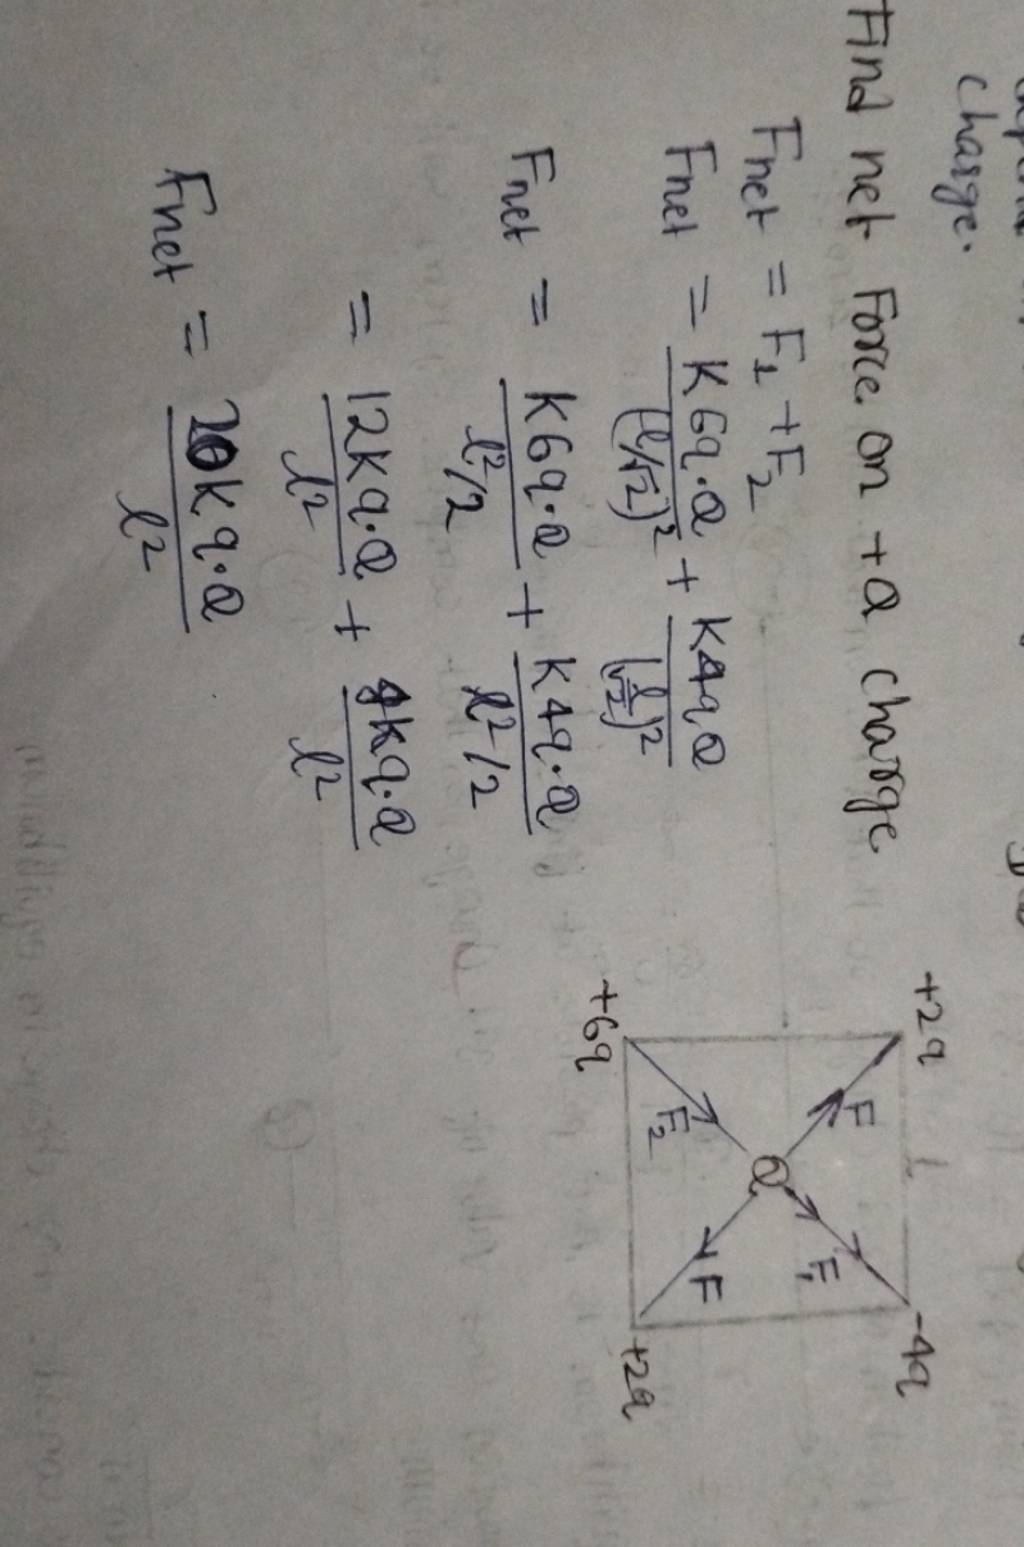 charge.
Find net Force on +Q charge
Fnet = F1 + F2
Fnet = K6q.Q/(l/√2)² + K4qQ/(l/√2)²
Fnet = K6q.Q/l²/2 + K4q.Q/l²/2
= 12Kq.Q/l² + 8Kq.Q/l²
Fnet = 20Kq.Q/l²
+2q l -4q
F F1
Q
F2 F
+6q +2q